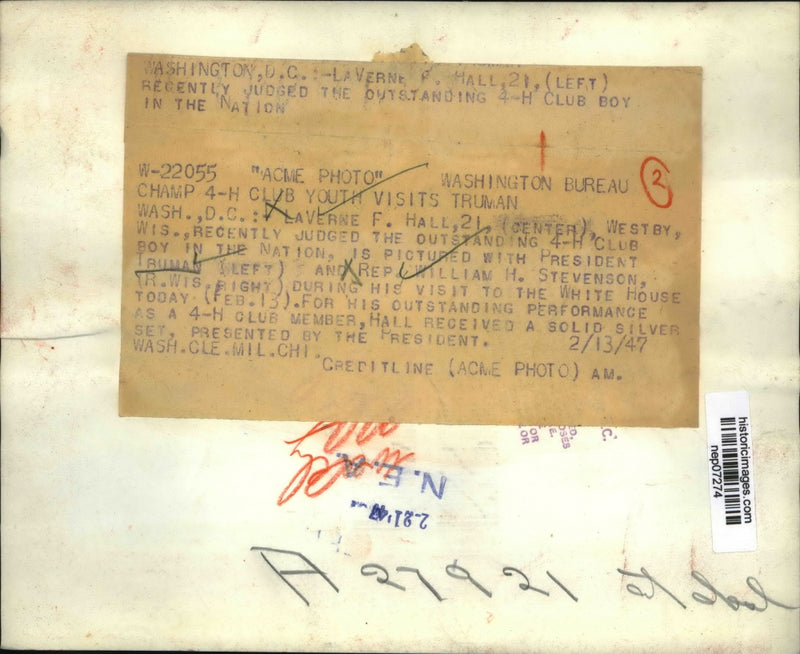 WASHINGTON,D.C.:-LAVERNE F. HALL,21,(LEFT)
RECENTLY JUDGED THE OUTSTANDING 4-H CLUB BOY
IN THE NATION
W-22055 "ACME PHOTO" WASHINGTON BUREAU
2
CHAMP 4-H CLUB YOUTH VISITS TRUMAN
WASH.,D.C.: LAVERNE F. HALL,21, (CENTER), WESTBY,
WIS.,RECENTLY JUDGED THE OUTSTANDING 4-H CLUB
BOY IN THE NATION, IS PICTURED WITH PRESIDENT
TRUMAN (LEFT) AND REP. WILLIAM H. STEVENSON,
(R.WIS.RIGHT),DURING HIS VISIT TO THE WHITE HOUSE
TODAY (FEB.13).FOR HIS OUTSTANDING PERFORMANCE
AS A 4-H CLUB MEMBER,HALL RECEIVED A SOLID SILVER
SET, PRESENTED BY THE PRESIDENT. 2/13/47
WASH.CLE.MIL.CHI.
CREDITLINE (ACME PHOTO) AM.
historicimages.com
nep07274
N.E.A.
2-21'47
A 27921